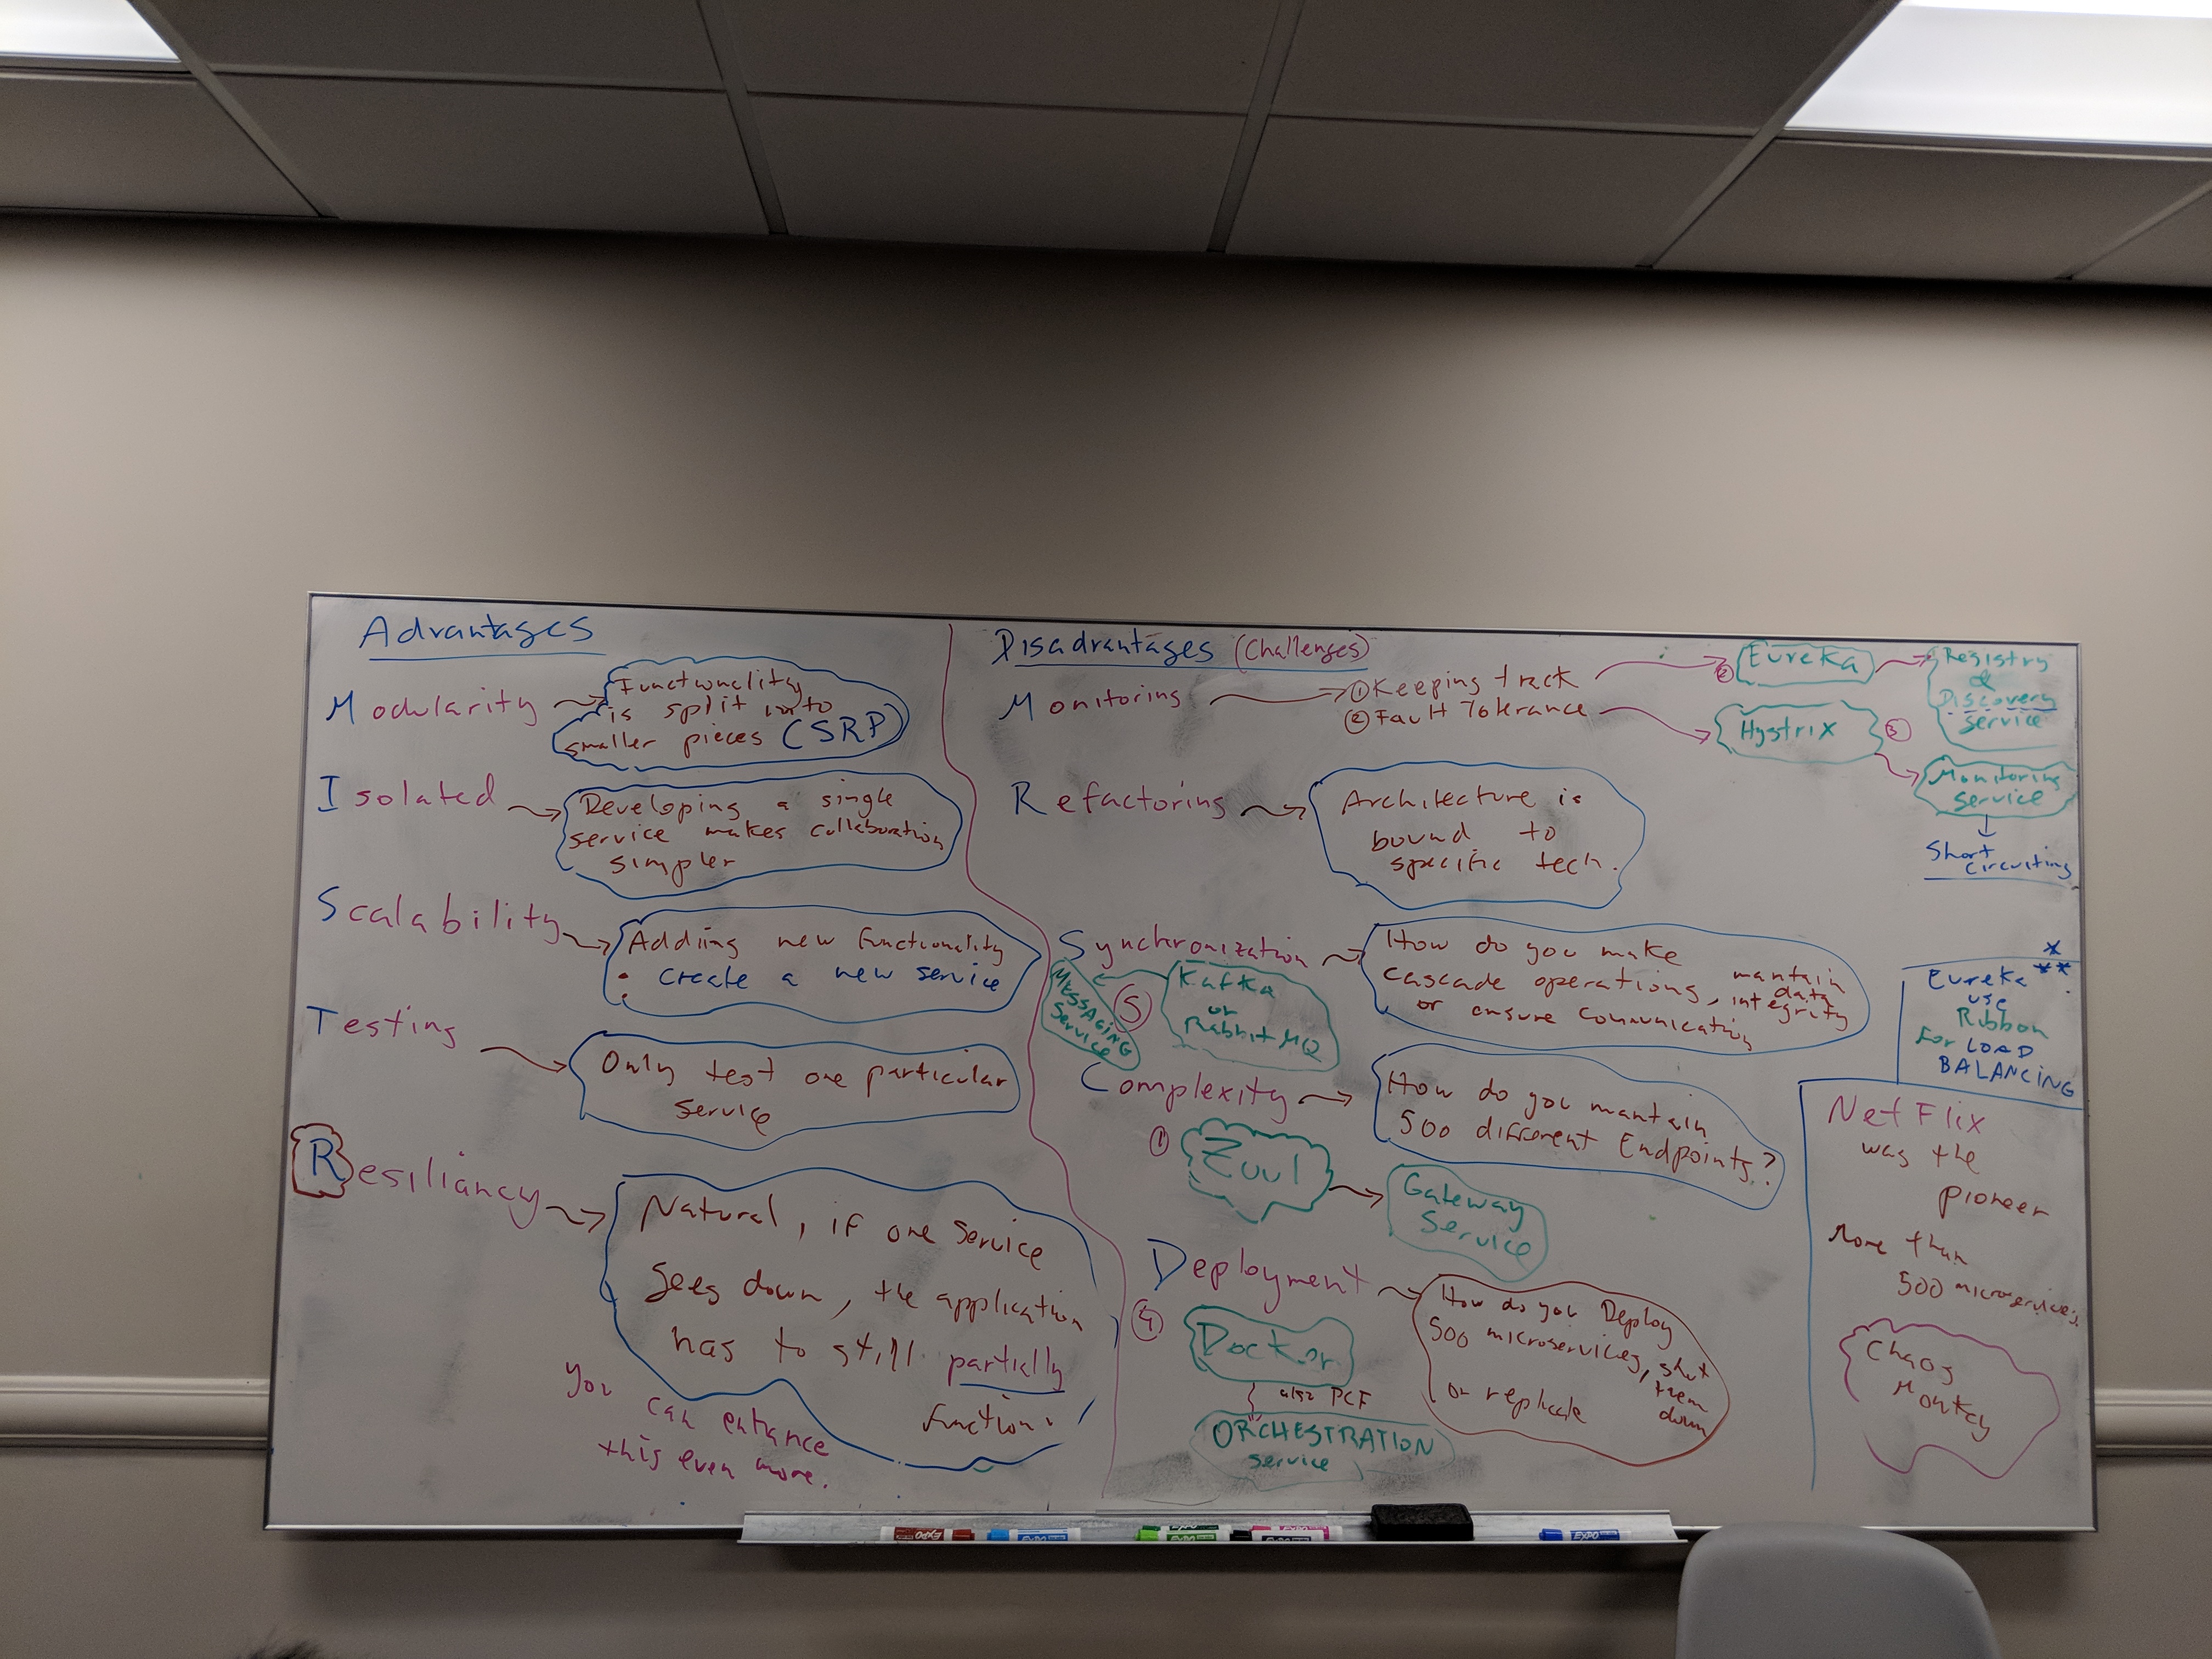 Advantages
Modularity
Functionality
is split into
smaller pieces (SRP)
Isolated
Developing a single
service makes collaboration
simpler
Scalability
Adding new functionality
• create a new service
Testing
Only test one particular
service
Resiliancy
Natural, if one service
goes down, the application
has to still partially
function.
you can enhance
this even more.
Disadvantages (Challenges)
Monitoring
① Keeping track
② Fault Tolerance
②
Eureka
Registry
&
Discovery
Service
Hystrix
③
Monitoring
Service
Short
Circuiting
Refactoring
Architecture is
bound to
specific tech.
Synchronization
How do you make
cascade operations, mantain
data
integrity
or ensure communication
Kafka
or
RabbitMQ
⑤
MESSAGING
Service
Complexity
How do you mantain
500 different Endpoints?
①
Zuul
Gateway
Service
Deployment
How do you Deploy
500 microservices, shut
them
down
or replicate
④
Docker
also PCF
ORCHESTRATION
service
*
**
Eureka
use
Ribbon
for LOAD
BALANCING
NetFlix
was the
pioneer
More than
500 microservices
Chaos
Monkey
EXPO
EXPO
EXPO
EXPO
EXPO